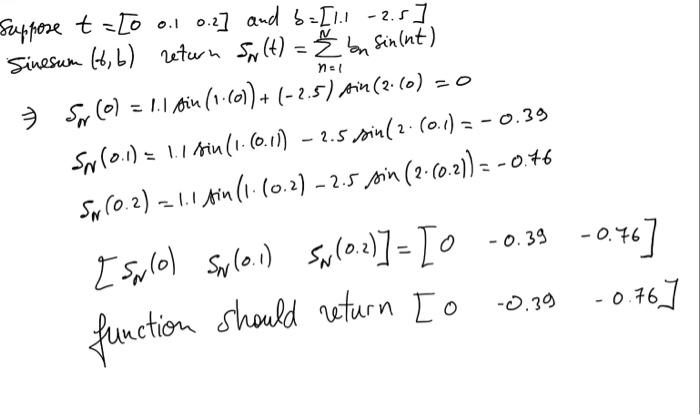 Suppose t = [0 0.1 0.2] and b = [1.1 -2.5]
Sinesum (t, b) return S_N(t) = Σ_{n=1}^{N} b_n Sin(nt)
⇒ S_N(0) = 1.1 sin(1·(0)) + (-2.5) sin(2·(0) = 0
S_N(0.1) = 1.1 sin(1·(0.1)) - 2.5 sin(2·(0.1) = -0.39
S_N(0.2) = 1.1 sin(1·(0.2) - 2.5 sin(2·(0.2)) = -0.76
[S_N(0) S_N(0.1) S_N(0.2)] = [0 -0.39 -0.76]
function should return [0 -0.39 -0.76]